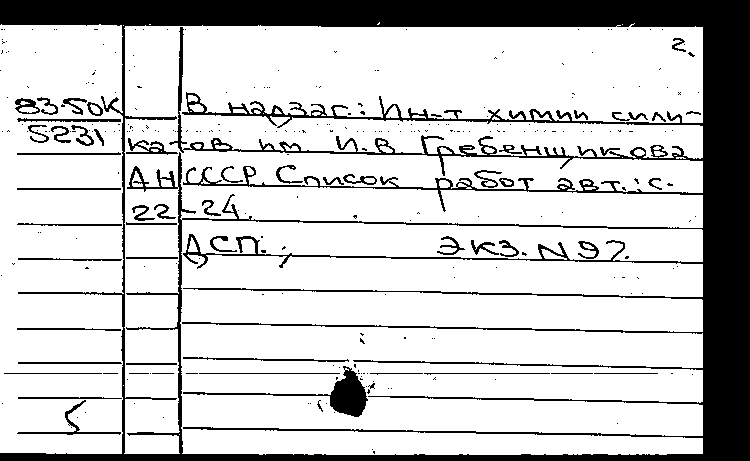 2.
83-50К В надзаг.: Ин-т химии сили-
5231 катов им И.В Гребенщикова
АН СССР. Список работ авт.: с.
22-24.
ДСП.; Экз. N97.
5